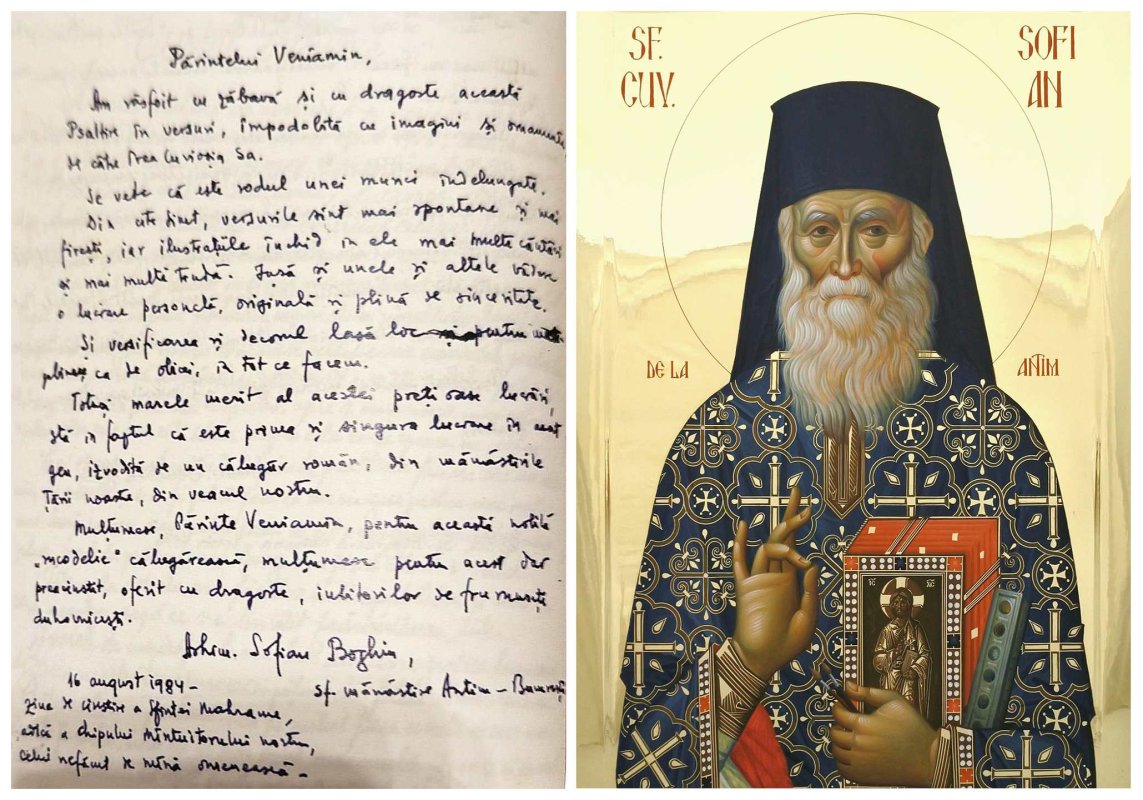 Părintelui Veniamin,
Am răsfoit cu zăbavă și cu dragoste această
Psaltire în versuri, împodobită cu imagini și ornamente
de către Prea Cuvioșia Sa.
Se vede că este rodul unei munci îndelungate.
Din cîte sînt, versurile sînt mai spontane și mai
firești, iar ilustrațiile închid în ele mai multe căutări
și mai multă trudă. Însă și unele și altele vădesc
o lucrare personală, originală și plină de sinceritate.
Și versificarea și decorul lasă loc pentru
plinire ca de obicei, în tot ce facem.
Totuși marele merit al acestei prețioase lucrări,
stă în faptul că este prima și singura lucrare în acest
gen, izvodită de un călugăr român, din mănăstirile
Țării noastre, din veacul nostru.
Mulțumesc, Părinte Veniamin, pentru această
călugărească, mulțumesc pentru acest dar
preacinstit, oferit cu dragoste, iubitorilor de frumuseți
duhovnicești.
Arhim. Sofian Boghiu,
16 august 1984 -
sf. mănăstire Antim - București
Ziua de cinstire a Sfintei Mahrame,
adică a Chipului Mîntuitorului nostru,
celui nefăcut de mînă omenească -
SF.
CUV.
SOFI
AN
DE LA
ANTIM
IC
XC